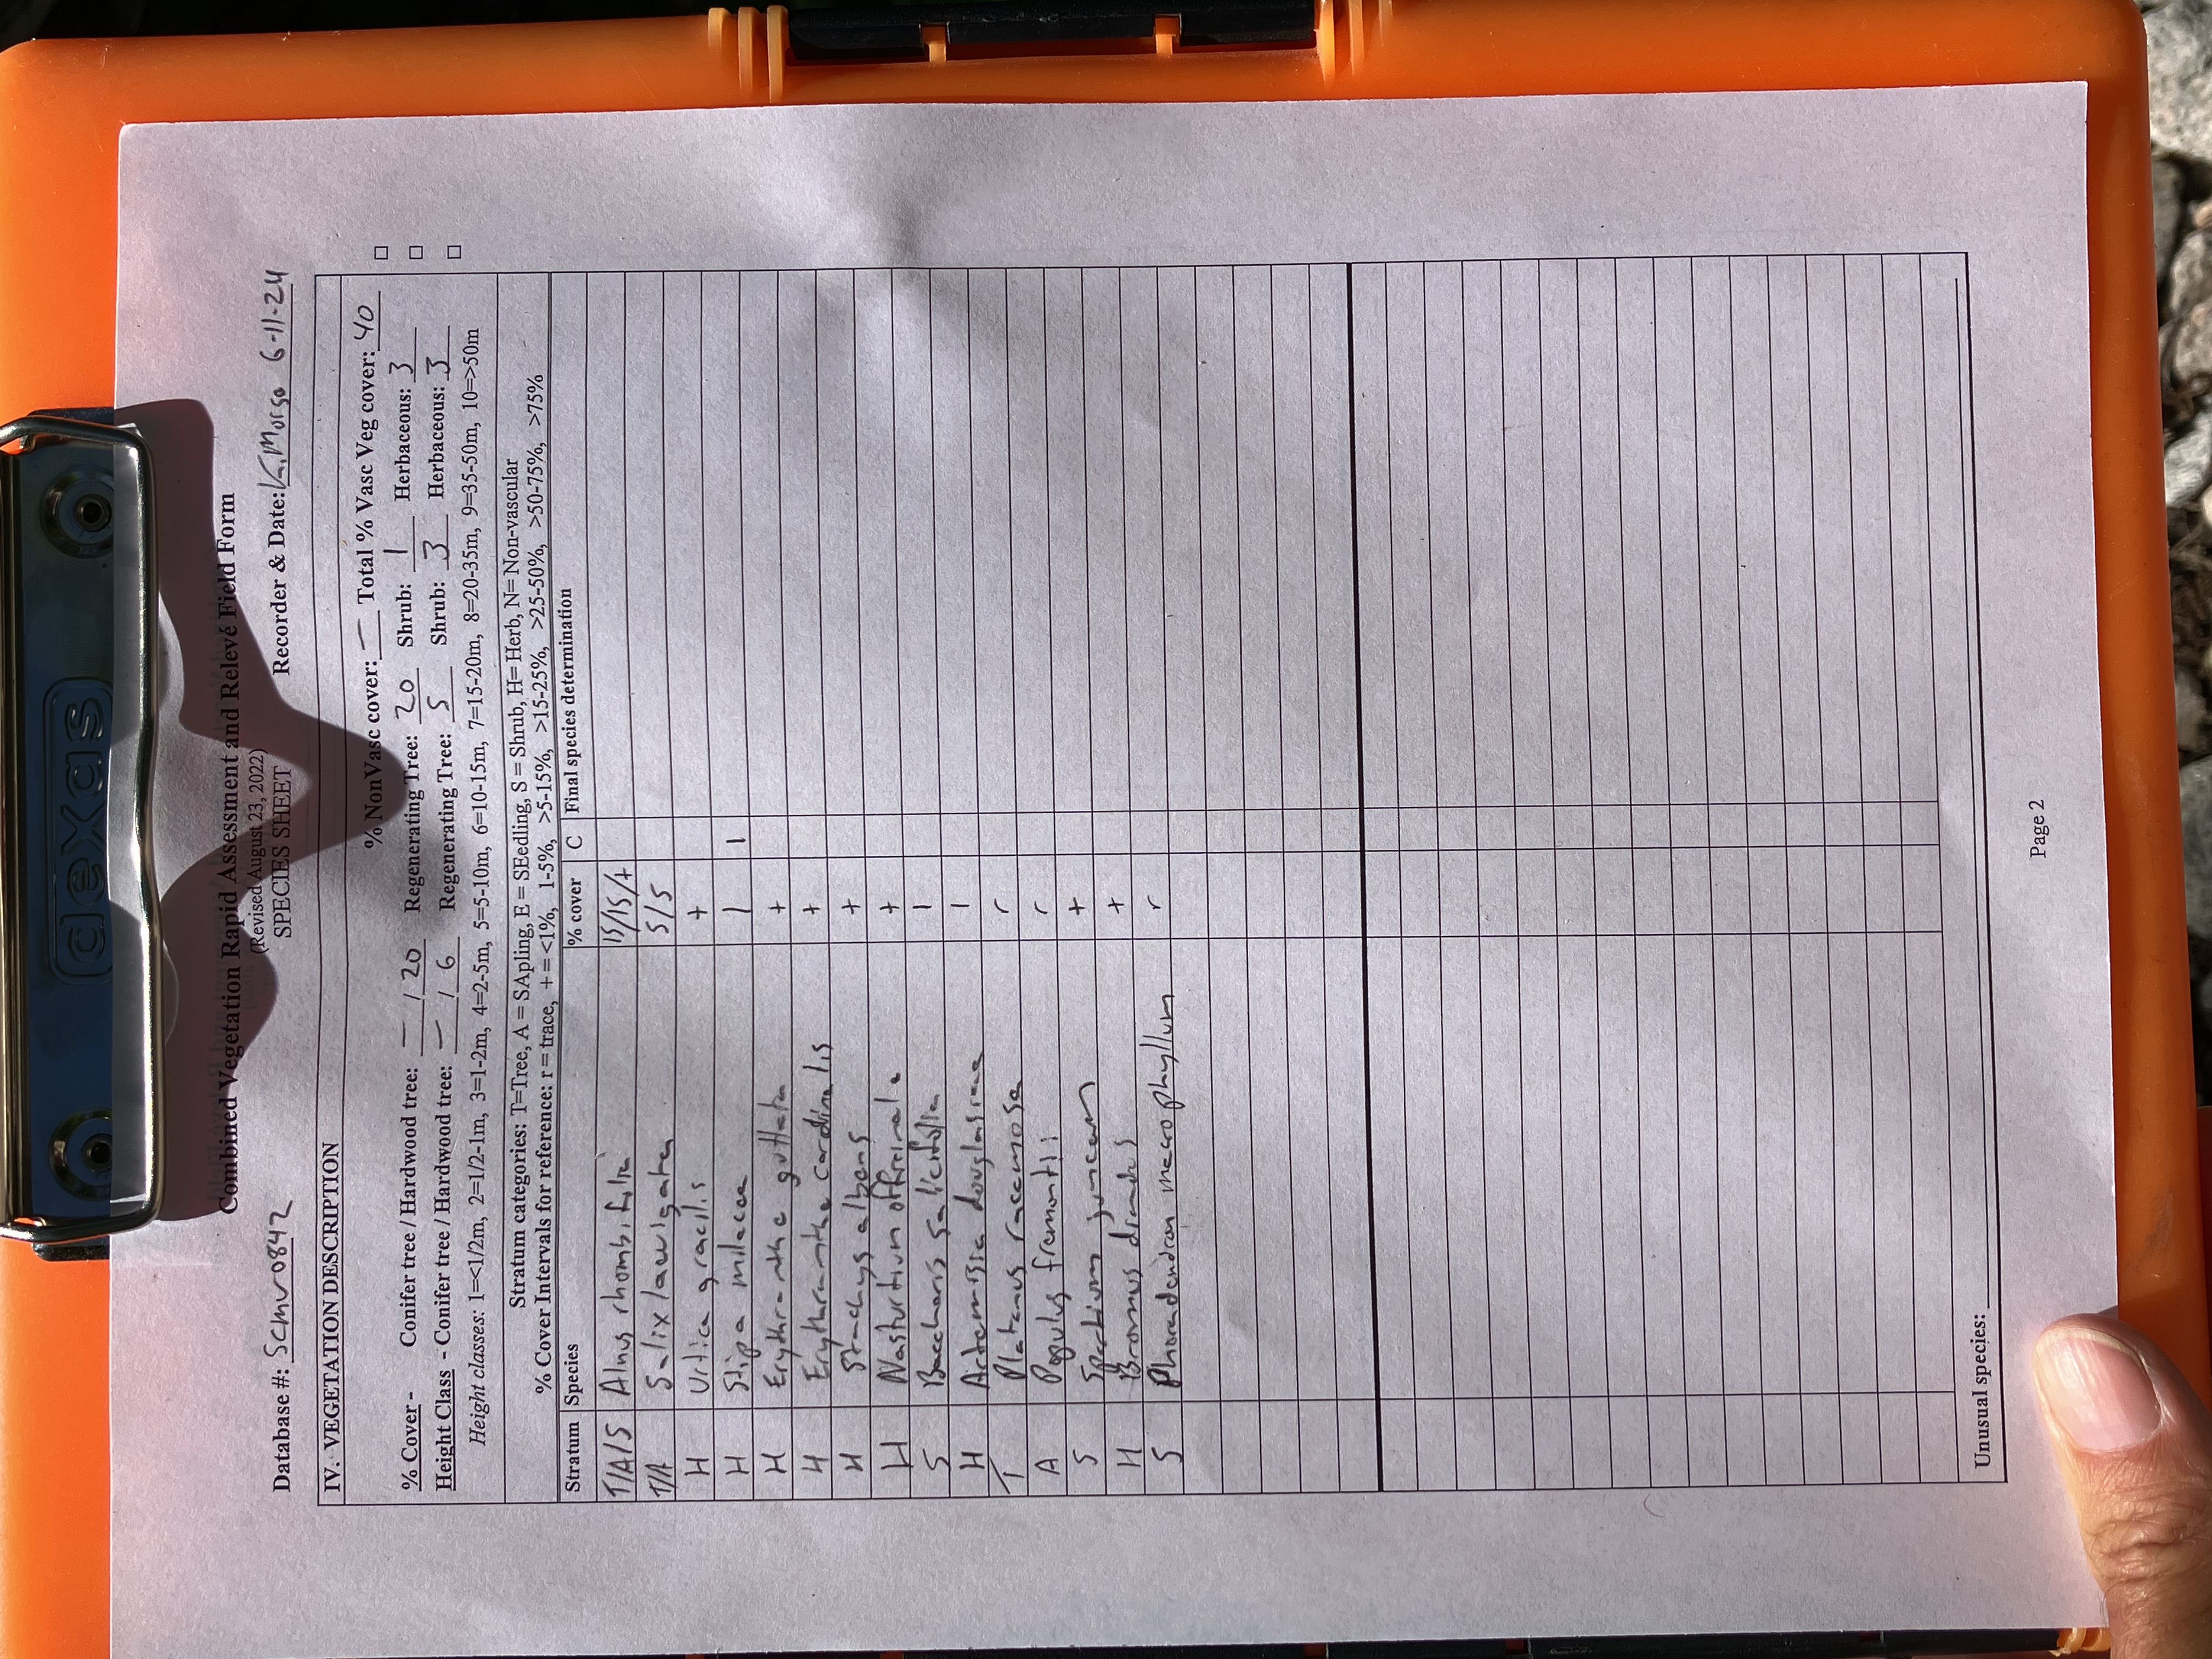 dexas
Combined Vegetation Rapid Assessment and Relevé Field Form
(Revised August 23, 2022)
SPECIES SHEET
Database #: SCMVr0842 Recorder & Date: K.Morse 6-11-24
IV. VEGETATION DESCRIPTION
% NonVasc cover: — Total % Vasc Veg cover: 40 □
% Cover - Conifer tree / Hardwood tree: — / 20 Regenerating Tree: 20 Shrub: 1 Herbaceous: 3 □
Height Class - Conifer tree / Hardwood tree: — / 6 Regenerating Tree: 5 Shrub: 3 Herbaceous: 3 □
Height classes: 1=<1/2m, 2=1/2-1m, 3=1-2m, 4=2-5m, 5=5-10m, 6=10-15m, 7=15-20m, 8=20-35m, 9=35-50m, 10=>50m
Stratum categories: T=Tree, A = SApling, E = SEedling, S = Shrub, H= Herb, N= Non-vascular
% Cover Intervals for reference: r = trace, + = <1%, 1-5%, >5-15%, >15-25%, >25-50%, >50-75%, >75%
Stratum Species % cover C Final species determination
T/A/S Alnus rhombifolia 15/15/+
T/A Salix laevigata 5/5
H Urtica gracilis +
H Stipa milacea 1 1
H Erythranthe guttata +
H Erythranthe cardinalis +
H Stachys albens +
H Nasturtium officinale +
S Baccharis salicifolia 1
H Artemisia douglasiana 1
T Platanus racemosa r
A Populus fremontii r
S Spartium junceum +
H Bromus diandrus +
S Phoradendron macrophyllum r
Unusual species:
Page 2